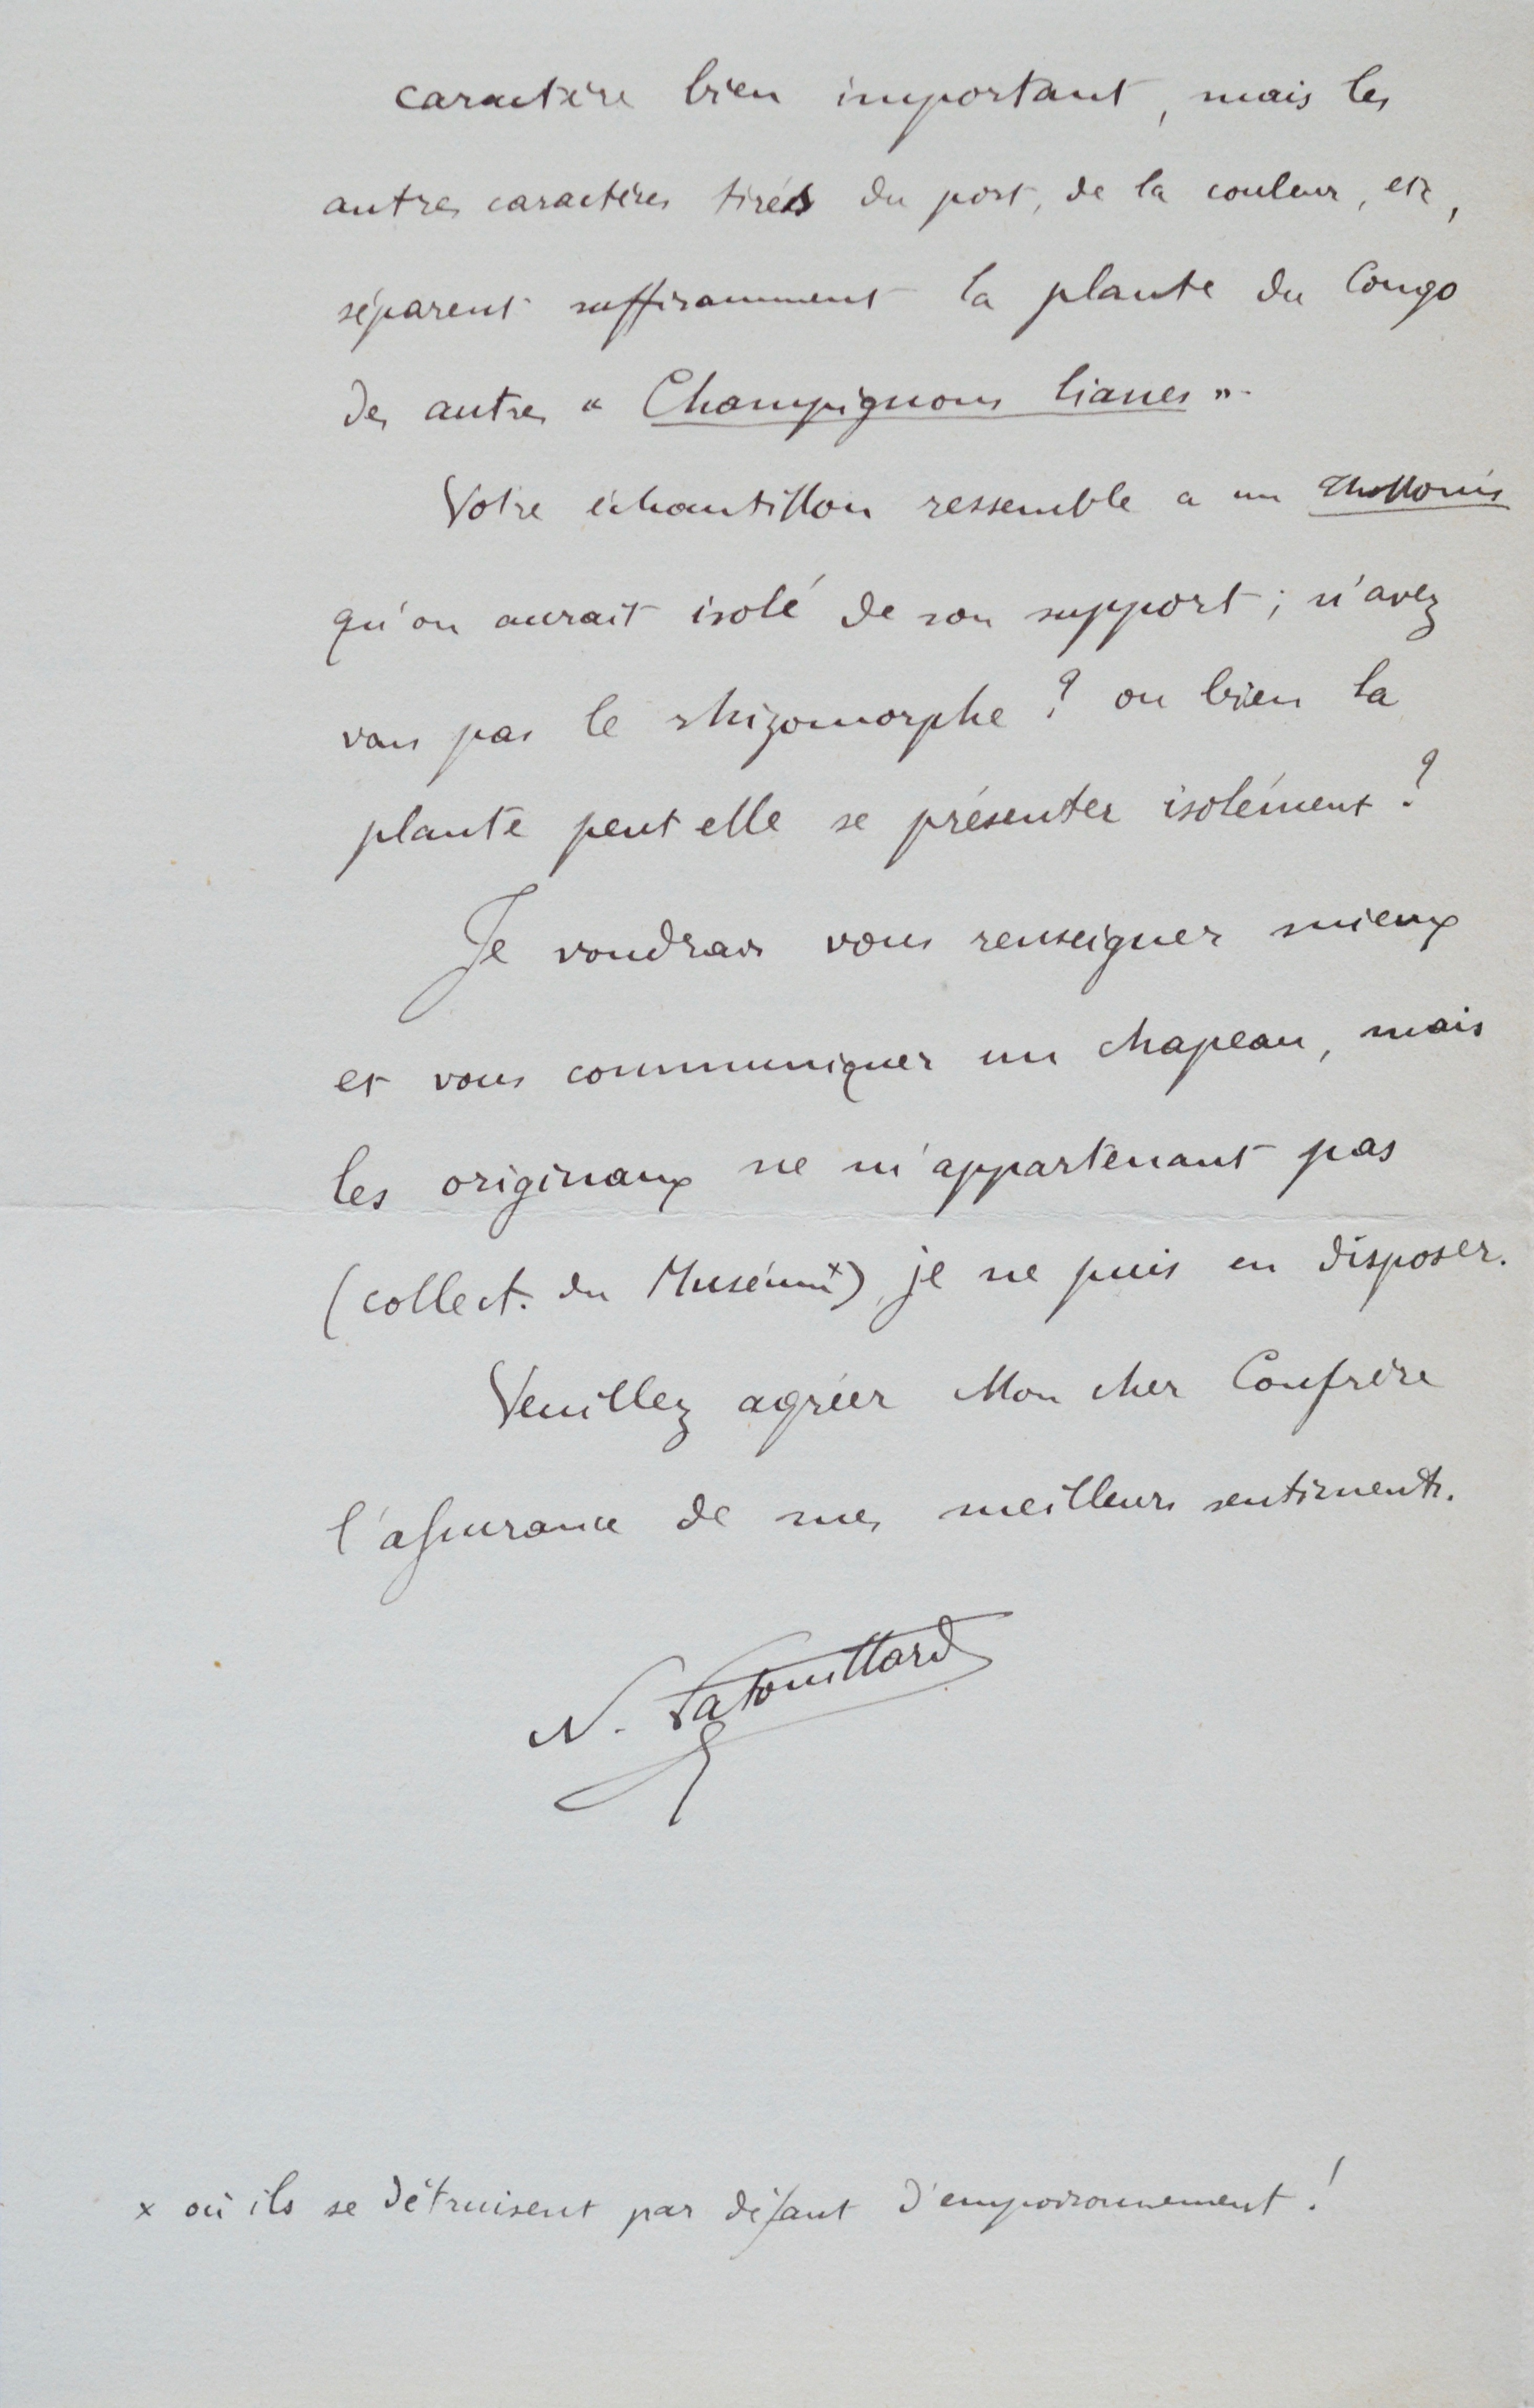 caractère bien important, mais les
autres caractères tirés du port, de la couleur, etc,
séparent suffisamment la plante du Congo
des autres « Champignons lianes ».
Votre échantillon ressemble a un Thollonis
qu'on aurait isolé de son support ; n'avez
vous pas le rhizomorphe ? ou bien la
plante peut elle se présenter isolément ?
Je voudrais vous renseigner mieux
et vous communiquer un chapeau, mais
les originaux ne m'appartenant pas
(collect. du Muséum x), je ne puis en disposer.
Veuillez agréer Mon cher Confrère
l'assurance de mes meilleurs sentiments.
N. Patouillard
x où ils se détruisent par défaut d'empoisonnement !